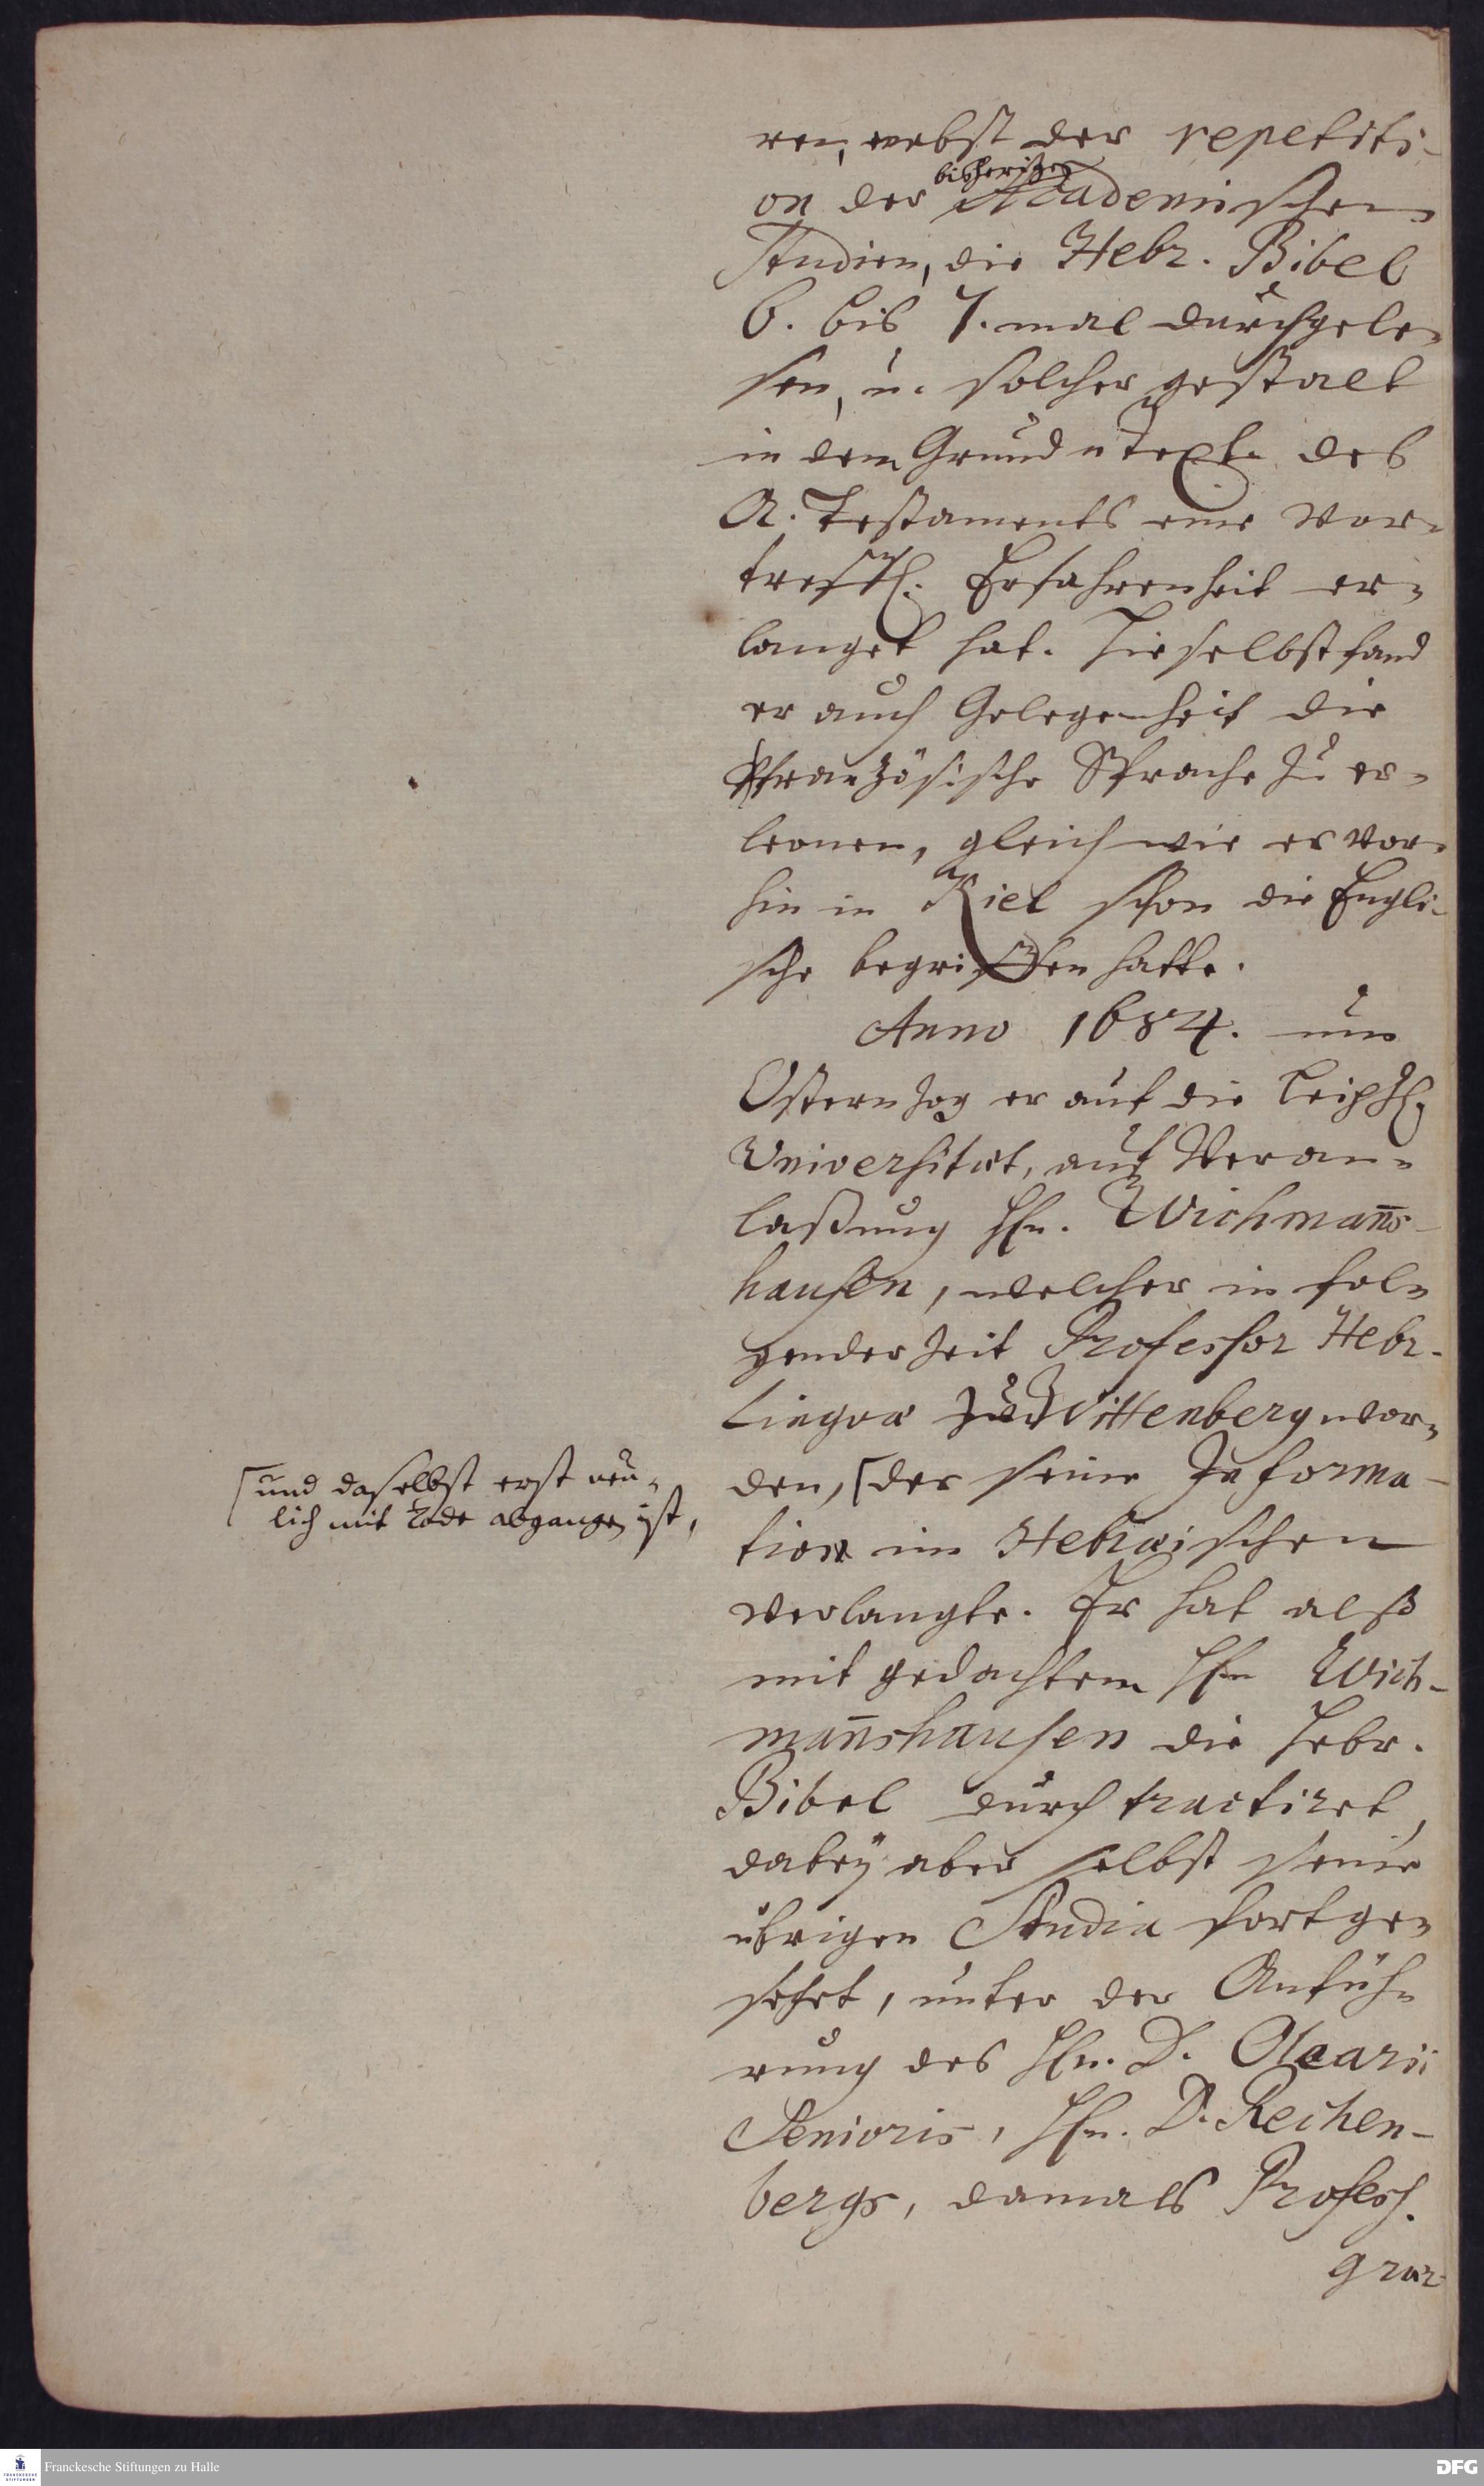 ren, nebst der repetiti-
bisherigen
on der Academischen
Studien, die Hebr. Bibel
6. bis 7. mal durchgele-
sen, u. solcher gestalt
in dem Grund-Texte des
A. Testaments eine vor-
treffl. Erfahrenheit er-
langet hat. Hieselbst fand
er auch Gelegenheit die
Französische Sprache zu er-
lernen, gleich wie er vor-
hin in Kiel schon die Engli-
sche begriffen hatte.
Anno 1684. um
Ostern zog er auf die Leipz.
Universität, auf Veran-
laßung Hn. Wichman̄s-
hausen, welcher in fol-
gender Zeit Professor Hebr.
Linguæ zu Wittenberg wor-
den, [der seine Informa-
[und daselbst erst neu-
lich mit Tode abgangen ist,
tion im Hebräischen
verlangte. Er hat alß
mit gedachtem Hn Wich-
man̄shausen die Hebr.
Bibel durch tractiret,
dabeÿ aber selbst seine
übrigen Studia fortge-
setzet, unter der Anfüh-
rung des Hn. D. Olearii
Senioris, Hn. D. Rechen-
bergs, damals Profess.
græc
Franckesche Stiftungen zu Halle
FRANCKESCHE
STIFTUNGEN
DFG